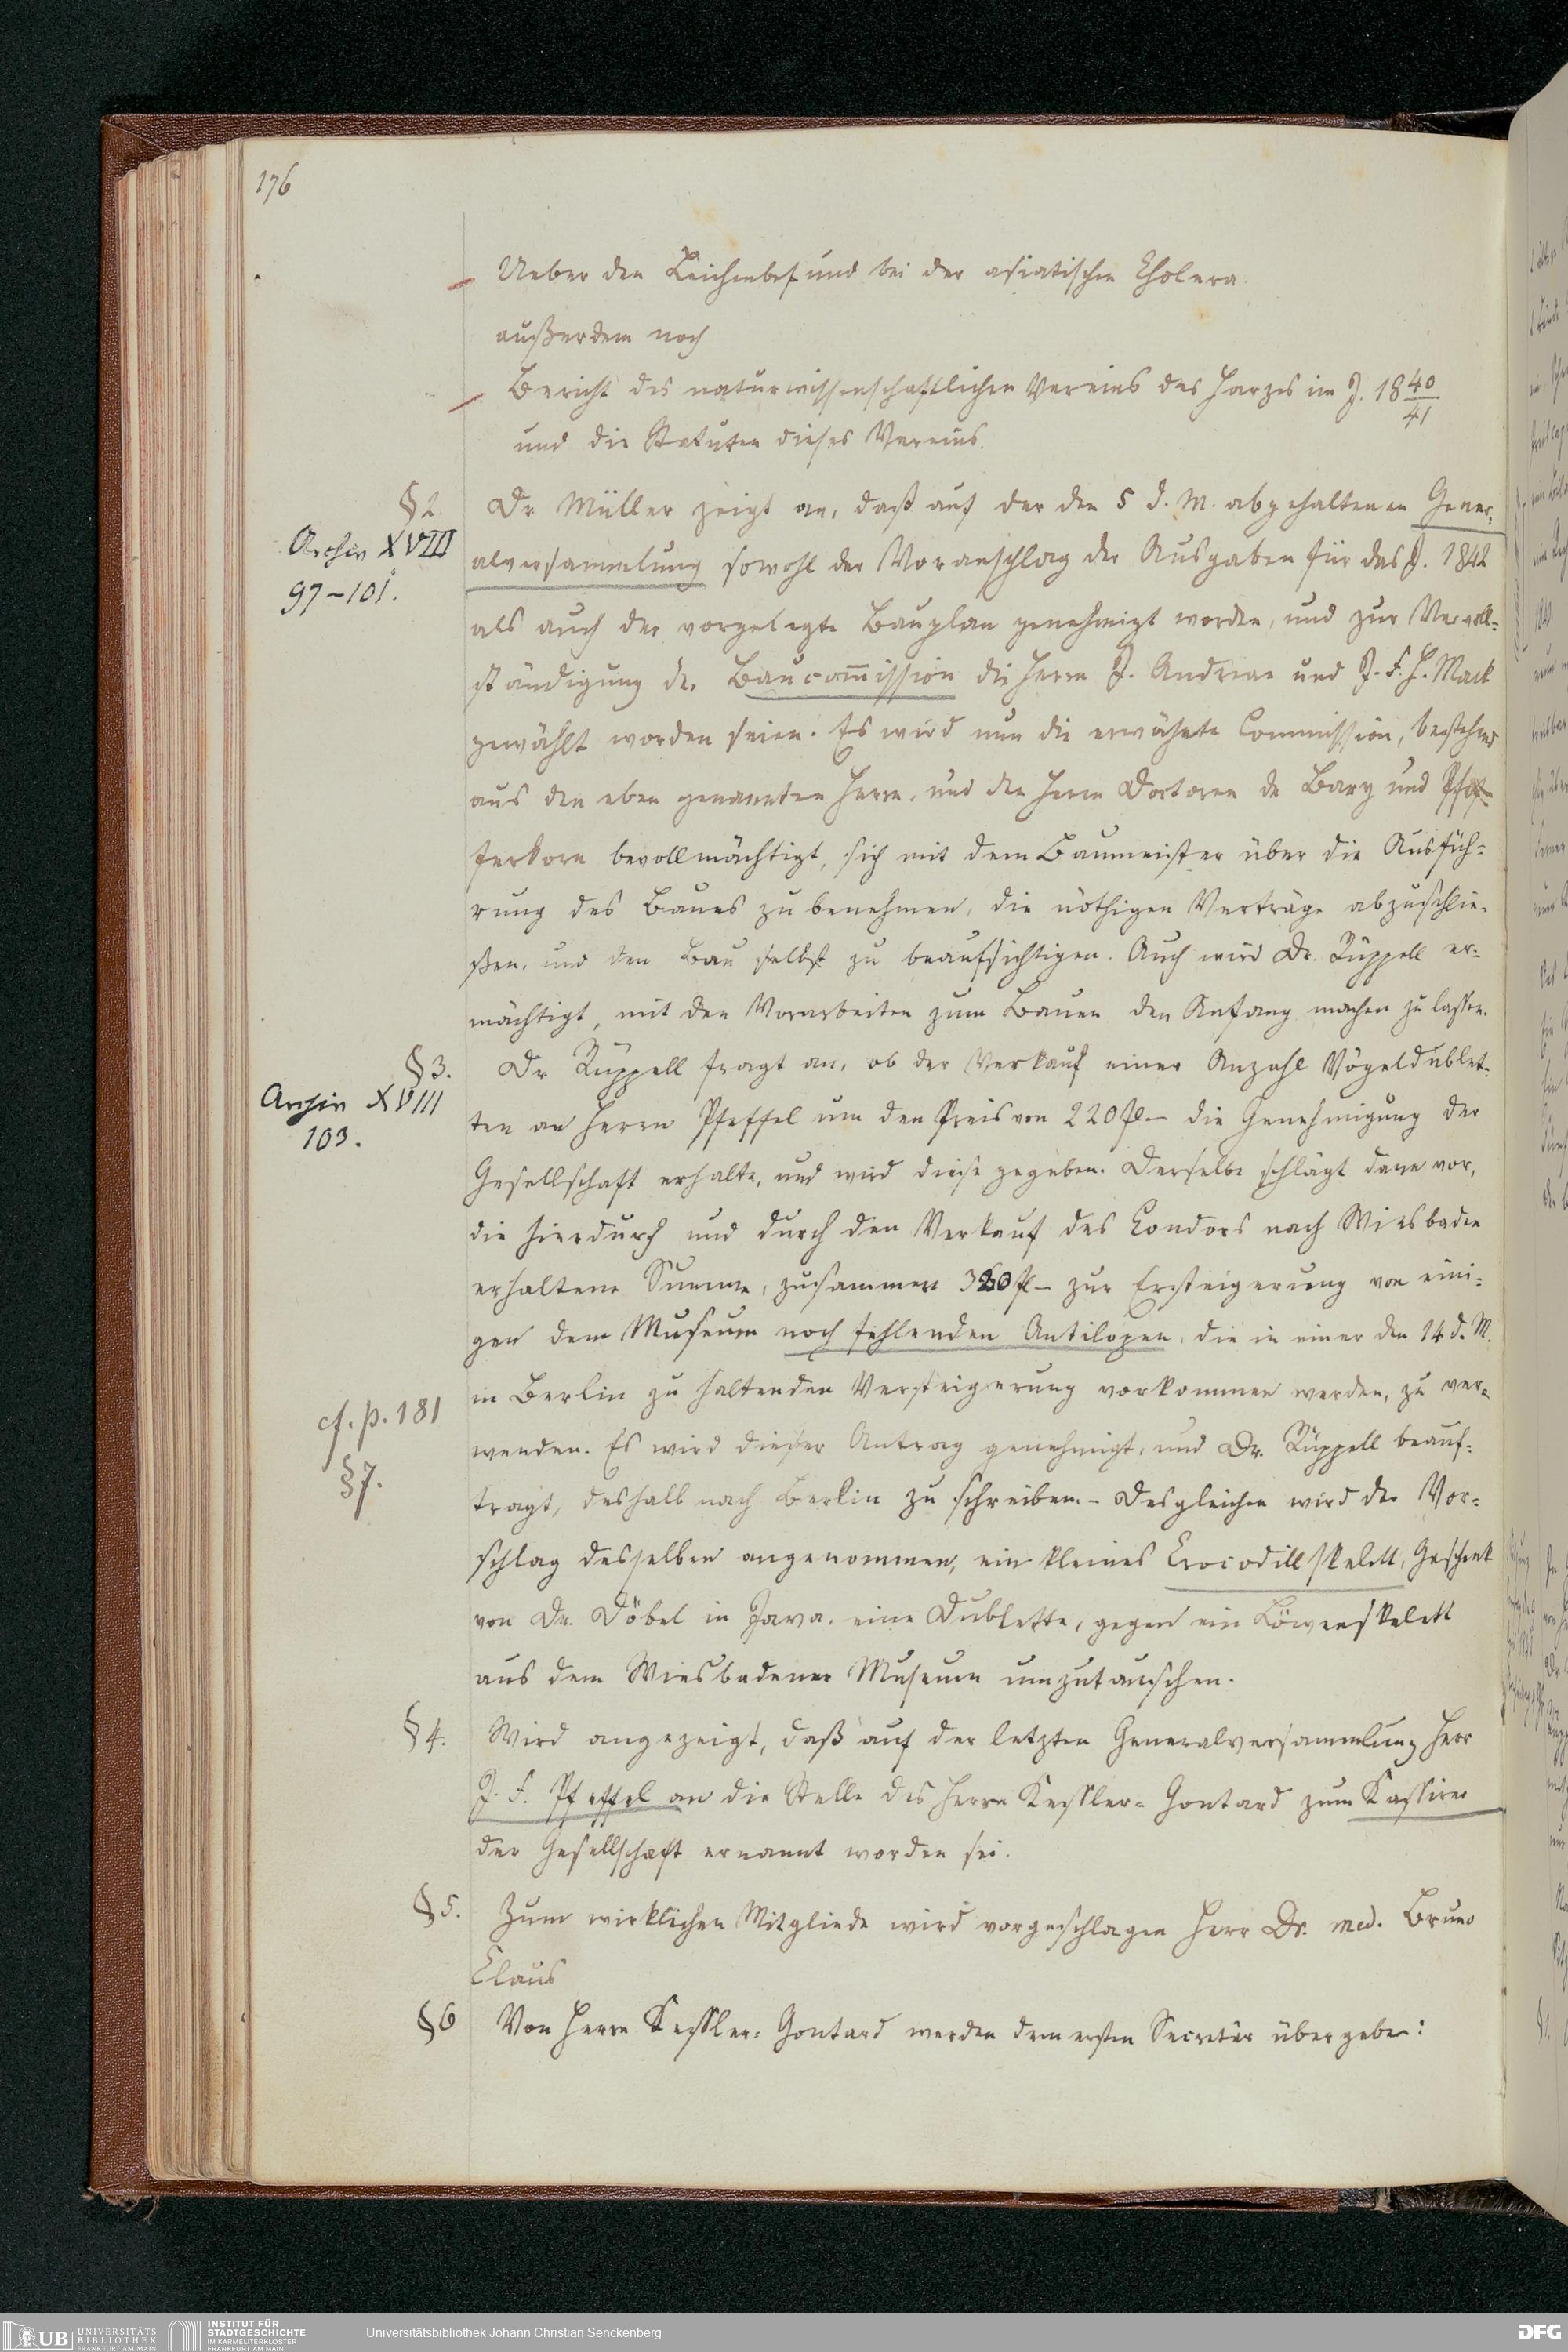 176
Ueber den Leichenbefund bei der asiatischen Cholera.
außerdem noch
Bericht des naturwissenschaftlichen Vereins des Harzes im J. 1840/41
und die Statuten dieses Vereins.
§2. Dr Müller zeigt an, daß auf der den 5 d. M. abgehaltenen Gener-
Archiv XVIII
97-101.
alversammlung sowohl der Voranschlag der Ausgaben für das J. 1842
als auch der vorgelegte Bauplan genehmigt worden, und zur Vervoll-
ständigung der Baucom̅ission die Herrn J. Andreae und J. F. H. Mack
gewählt worden seien. Es wird nun die erwähnte Commission, bestehend
aus den eben genannten Herrn, und den Herrn Doctoren de Bary und Pfef-
ferkorn bevollmächtigt, sich mit dem Baumeister über die Ausfüh-
rung des Baues zu benehmen, die nöthigen Verträge abzuschlie-
ßen, und den Bau selbst zu beaufsichtigen. Auch wird Dr. Rüppell er-
mächtigt, mit den Vorarbeiten zum Bauen den Anfang machen zu lassen.
§3. Dr Rüppell fragt an, ob der Verkauf einer Anzahl Vögeldublet-
Archiv XVIII
103.
ten an Herrn Pfeffel um den Preis von 220 fl– die Genehmigung der
Gesellschaft erhalte, und wird diese gegeben. Derselbe schlägt dann vor,
die hierdurch und durch den Verkauf des Condors nach Wiesbaden
erhaltene Summe, zusammen fl– zur Ersteigerung von eini-
gen dem Museum noch fehlenden Antilopen, die in einer den 14 d. M.
in Berlin zu haltenden Versteigerung vorkommen werden, zu ver-
cf. p. 181
§7.
wenden. Es wird dieser Antrag genehmigt, und Dr. Rüppell beauf-
tragt, deshalb nach Berlin zu schreiben. – Desgleichen wird der Vor-
schlag desselben angenommen, ein kleines Crocodillskelett, Geschenk
von Dr. Döbel in Java, eine Dublette, gegen ein Löwenskelett
aus dem Wiesbadener Museum umzutauschen.
§4. Wird angezeigt, daß auf der letzten Generalversammlung Herr
J. F. Pfeffel an die Stelle des Herrn Kessler-Gontard zum Kassirer
der Gesellschaft ernannt worden sei.
§5. Zum wirklichen Mitgliede wird vorgeschlagen Herr Dr. med. Bruno
Claus
§6 Von Herrn Kessler-Gontard werden dem ersten Secretär übergeben:
UB UNIVERSITÄTS
BIBLIOTHEK
FRANKFURT AM MAIN
INSTITUT FÜR
STADTGESCHICHTE
IM KARMELITERKLOSTER
FRANKFURT AM MAIN
Universitätsbibliothek Johann Christian Senckenberg
DFG